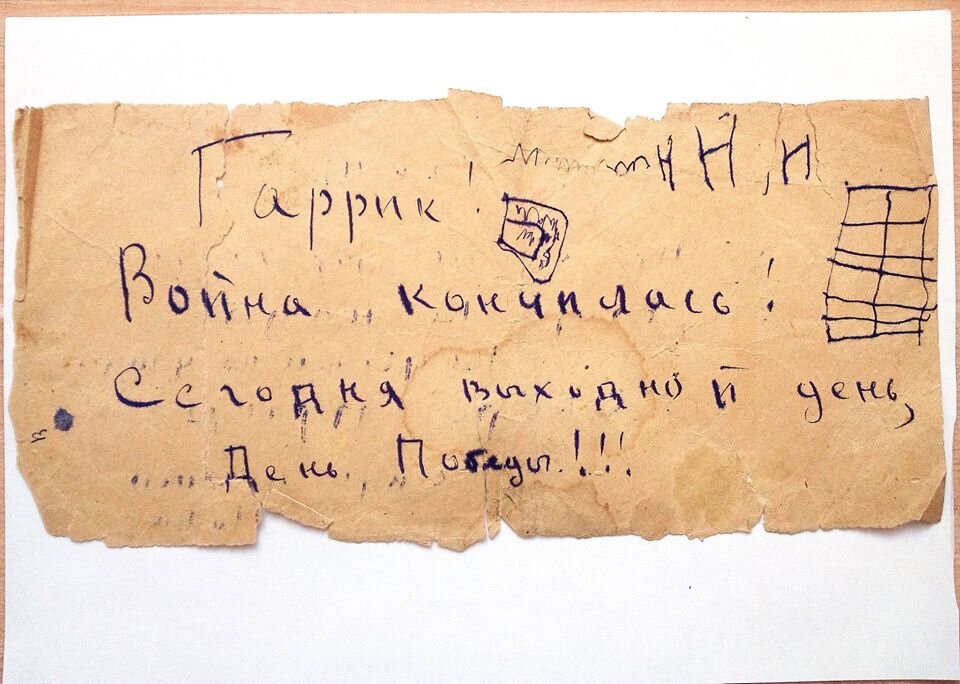 Гаррик! Н Н, и
Война кончилась!
Сегодня выходной день,
День Победы!!!